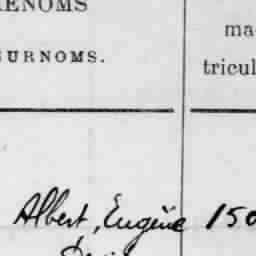 RENOMS
URNOMS.
ma
tricul
Albert, Eugène 150